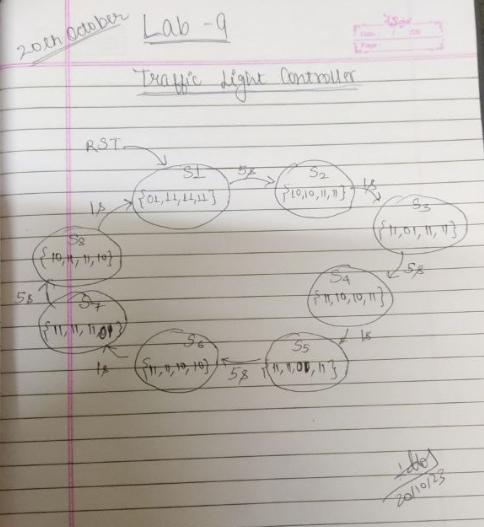 20th October
Lab - 9
Traffic Light Controller
RST
S1
{01, 11, 11, 11}
5s
S2
{10, 10, 11, 11}
1s
S3
{11, 01, 11, 11}
5s
S4
{11, 10, 10, 11}
1s
S5
{11, 11, 01, 11}
5s
S6
{11, 11, 10, 10}
1s
S7
{11, 11, 11, 01}
5s
S8
{10, 11, 11, 10}
1s
20/10/23